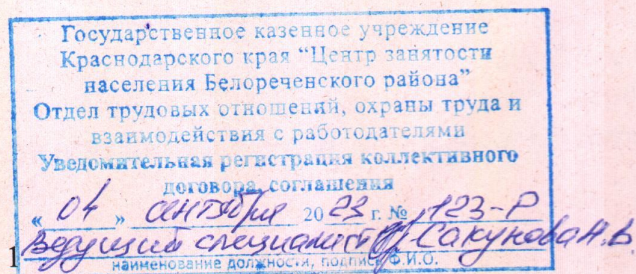 Государственное казенное учреждение
Краснодарского края "Центр занятости
населения Белореченского района"
Отдел трудовых отношений, охраны труда и
взаимодействия с работодателями
Уведомительная регистрация коллективного
договора, соглашения
« 04 » сентября 20 23 г. № 123-Р
1 Ведущий специалист Сакунова Н.В.
наименование должности, подпись Ф.И.О.